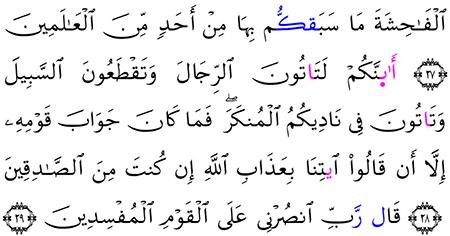 اَ۬لْفَٰحِشَةَ مَا سَبَقكُّم بِهَا مِنْ أَحَدٍ مِّنَ اَ۬لْعَٰلَمِينَ
﴿٢٧﴾ أَٰبِنَّكُمْ لَتَاتُونَ اَ۬لرِّجَالَ وَتَقْطَعُونَ اَ۬لسَّبِيلَ
وَتَاتُونَ فِى نَادِيكُمُ اُ۬لْمُنكَرَۖ فَمَا كَانَ جَوَابَ قَوْمِهِۦ
إِلَّا أَن قَالُوا۟ اُ۪يتِنَا بِعَذَابِ اِ۬للَّهِ إِن كُنتَ مِنَ اَ۬لصَّٰدِقِينَ
﴿٢٨﴾ قَال رَّبِّ اِ۟نصُرْنِى عَلَى اَ۬لْقَوْمِ اِ۬لْمُفْسِدِينَ ﴿٢٩﴾